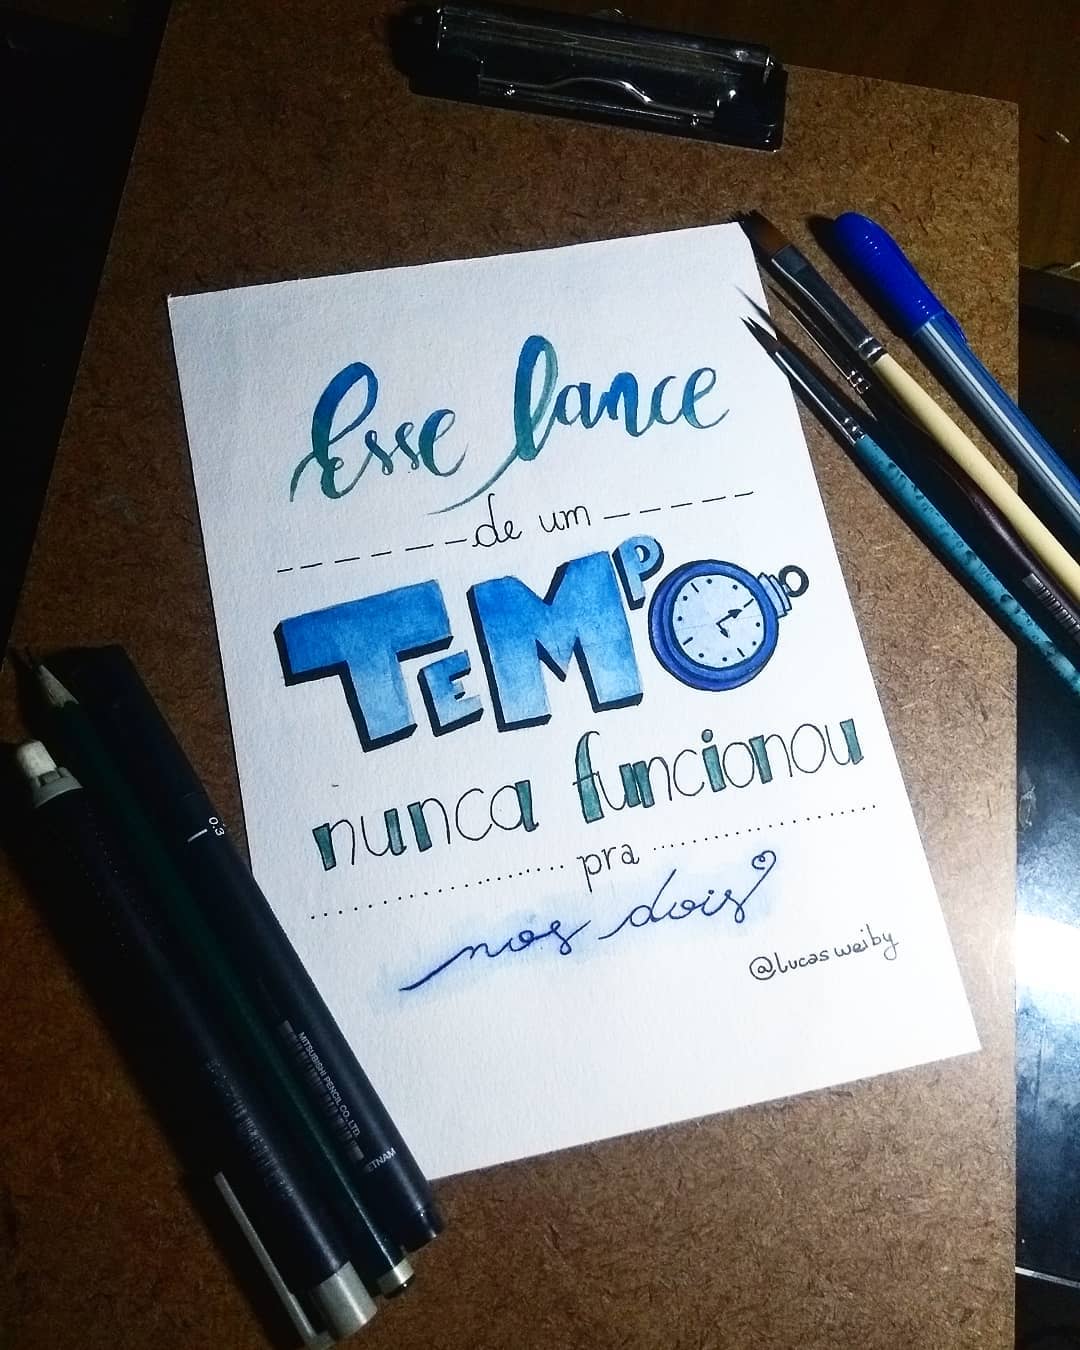 Esse lance
de um
TEMPO
nunca funcionou
pra
nós dois
@lucasweiby
0.3
MITSUBISHI PENCIL CO., LTD.
VIETNAM